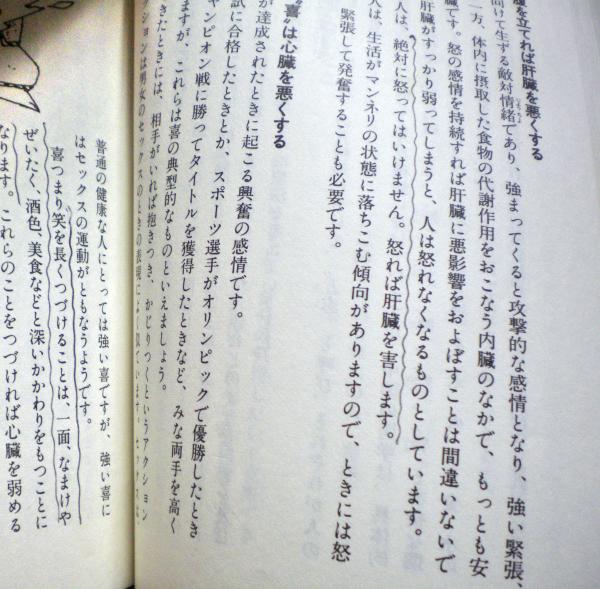 腹を立てれば肝臓を悪くする
向けて生ずる敵対情緒であり、強まってくると攻撃的な感情となり、強い緊張、
一方、体内に摂取した食物の代謝作用をおこなう内臓のなかで、もっとも安
臓です。怒の感情を持続すれば肝臓に悪影響をおよぼすことは間違いないで
肝臓がすっかり弱ってしまうと、人は怒れなくなるものとしています。
人は、絶対に怒ってはいけません。怒れば肝臓を害します。
人は、生活がマンネリの状態に落ちこむ傾向がありますので、ときには怒
緊張して発奮することも必要です。
“喜”は心臓を悪くする
が達成されたときに起こる興奮の感情です。
試に合格したときとか、スポーツ選手がオリンピックで優勝したとき
ャンピオン戦に勝ってタイトルを獲得したときなど、みな両手を高く
ますが、これらは喜の典型的なものといえましょう。
きたときには、相手がいれば抱きつき、かじりつくというアクション
クションは男女のセックスのときの表現によく似ています。セックスは
普通の健康な人にとっては強い喜ですが、強い喜に
はセックスの運動がともなうようです。
喜つまり笑を長くつづけることは、一面、なまけや
ぜいたく、酒色、美食などと深いかかわりをもつことに
なります。これらのことをつづければ心臓を弱める